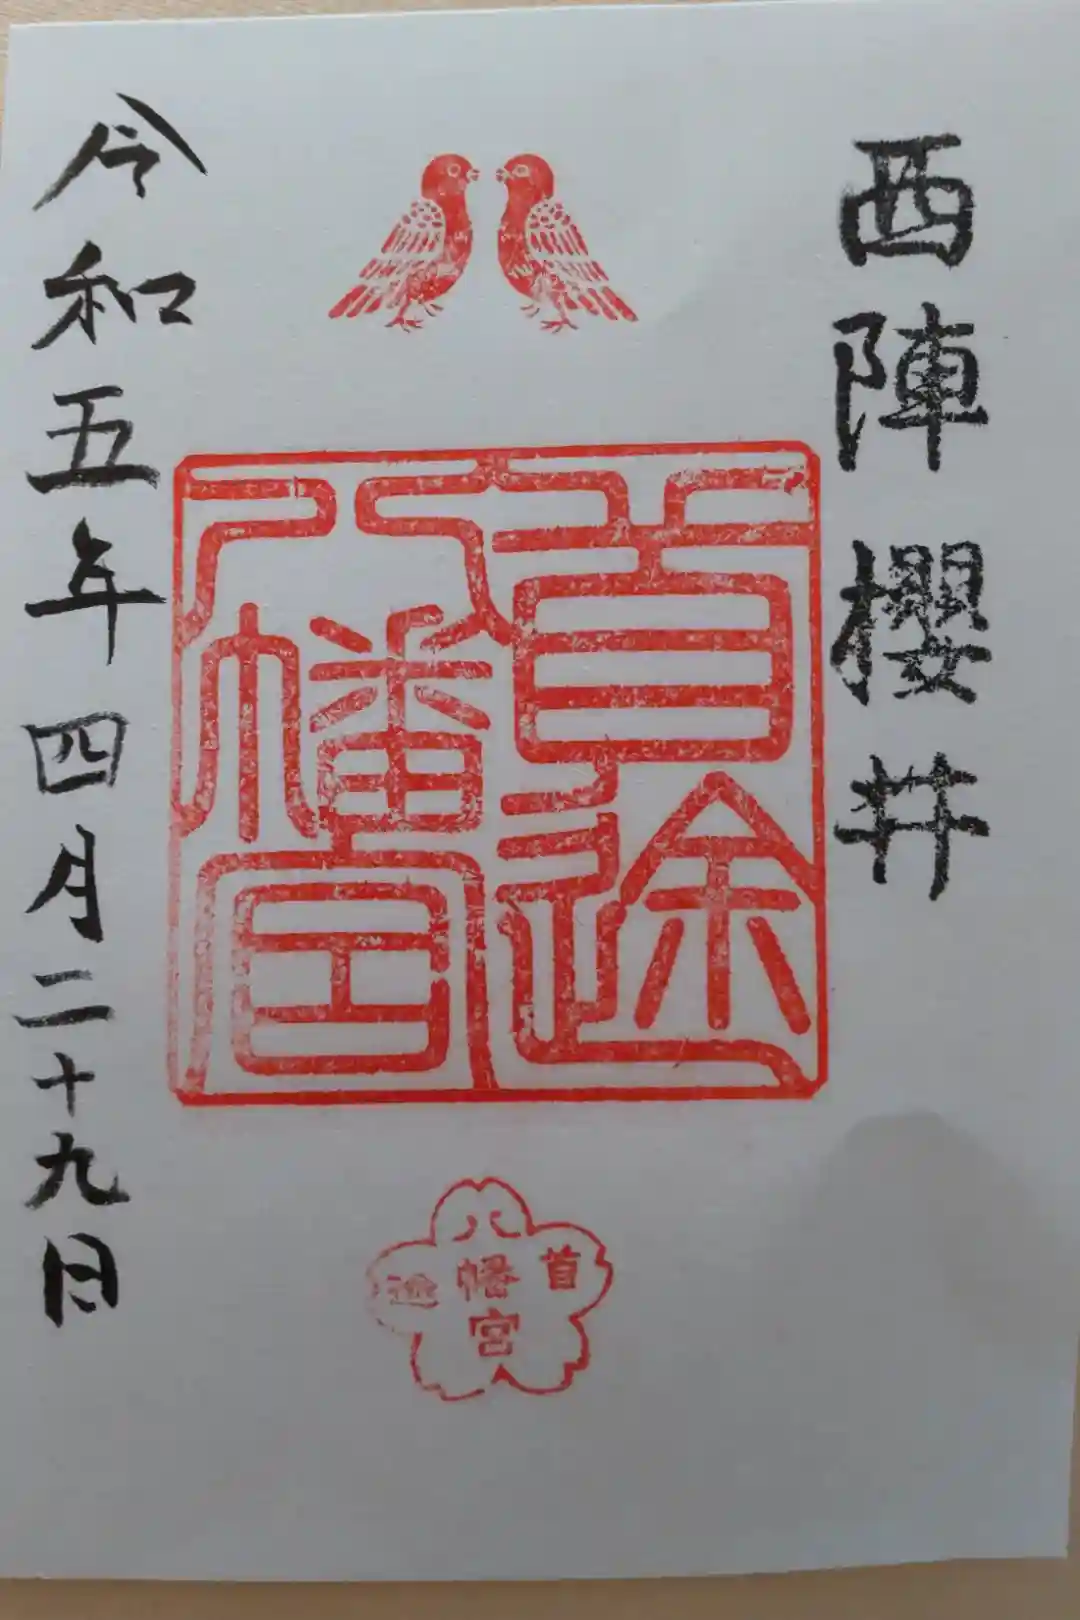 西陣櫻井
首途
八幡宮
首
八幡宮
途
令和五年四月二十九日